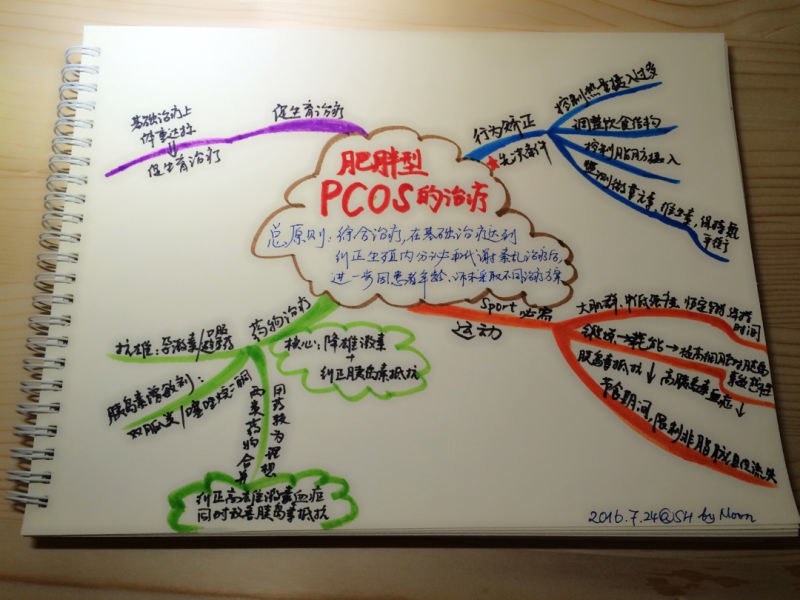 肥胖型
PCOS的治疗
总原则：综合治疗，在基础治疗达到
纠正生殖内分泌和代谢紊乱治疗后，
进一步因患者年龄、诉求采取不同治疗方案
行为矫正
★先决条件
控制热量摄入过多
调整饮食结构
控制脂肪摄入
监测微量元素，维生素，保持氮
平衡
Sport 必需
运动
大肌群、中低强度，恒定到
时间
糖原→耗能→提高
胰岛素抵抗↓ 高胰岛素血症↓
节食期间，限制非脂肪组织流失
药物治疗
核心：降雄激素
纠正胰岛素抵抗
抗雄：孕激素/口服
胰岛素增敏剂：
双胍类/噻唑烷二酮
两类药的合并
用药较为理想
纠正高雄激素血症
同时改善胰岛素抵抗
促生育治疗
基础治疗上
体重达标
⇓
促生育治疗
2016.7.24@SH by Moon